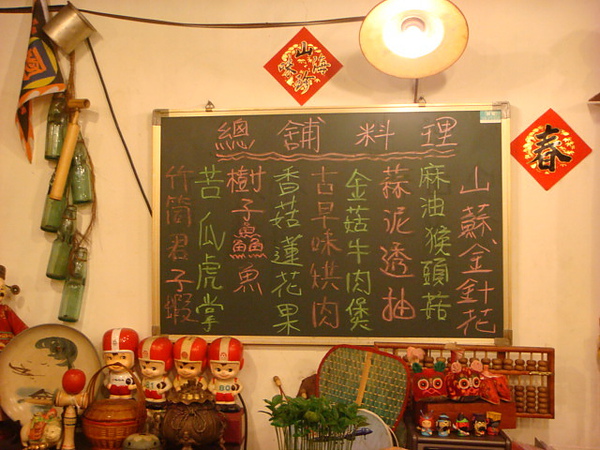 山珍海味
春
國
總舖料理
山蘇金針花
麻油猴頭菇
蒜泥透抽
金菇牛肉煲
古早味烘肉
香菇蓮花果
樹子鱻魚
苦瓜虎掌
竹筒君子蝦